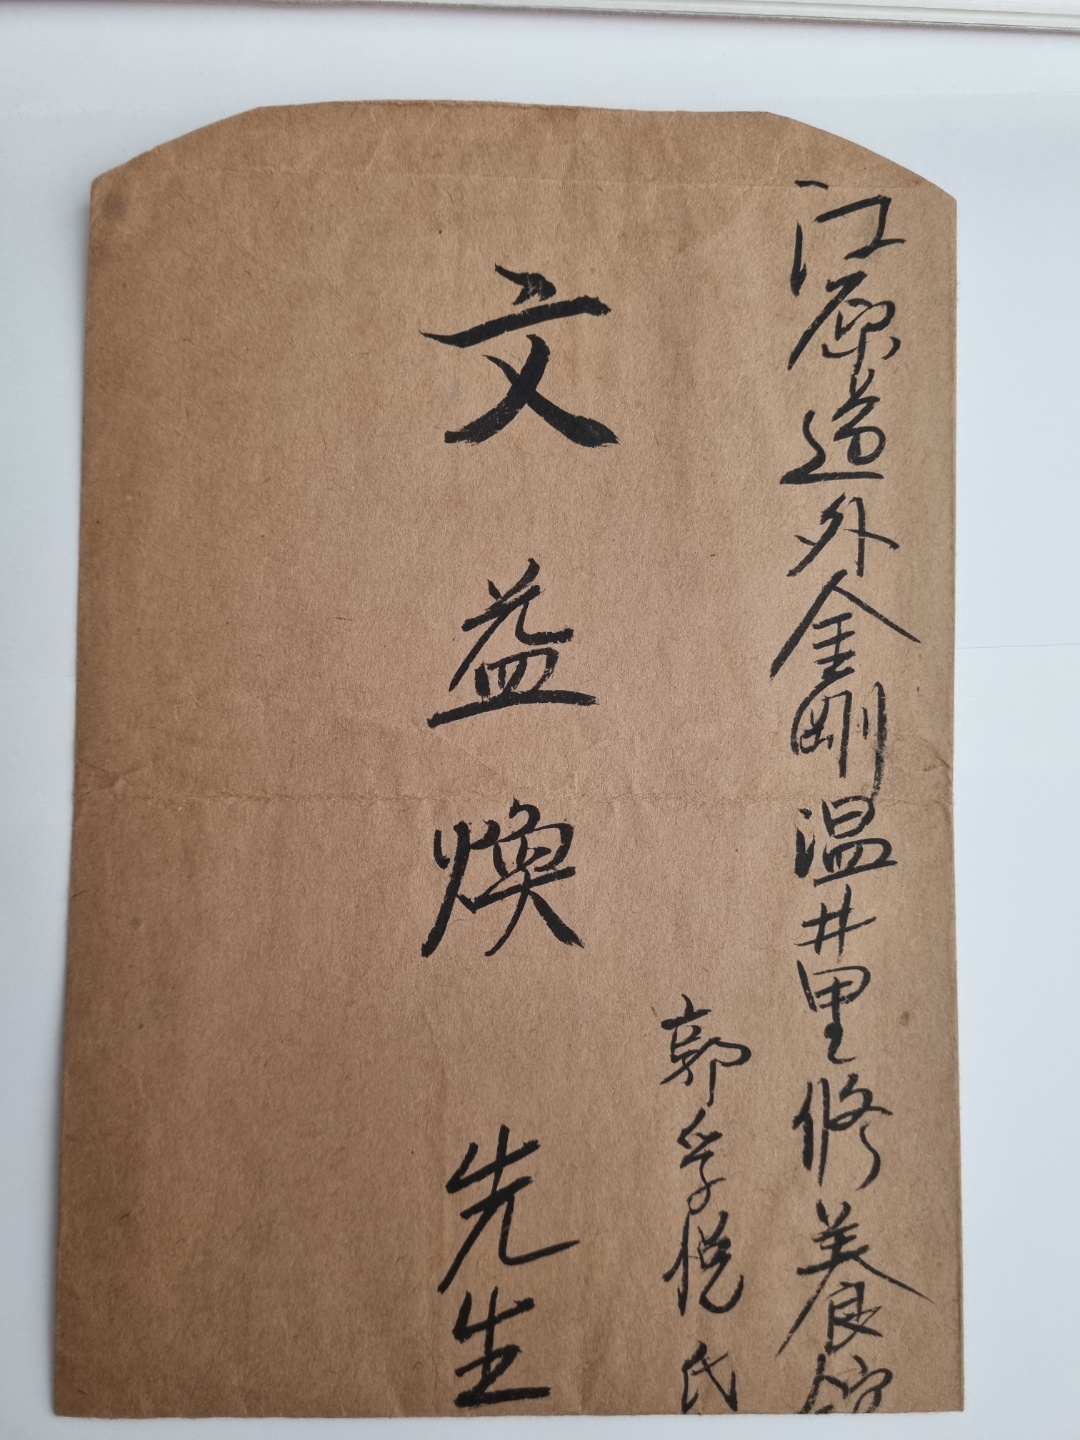 江原道外金剛温井里修養館
郭孚悦氏
文益煥 先生